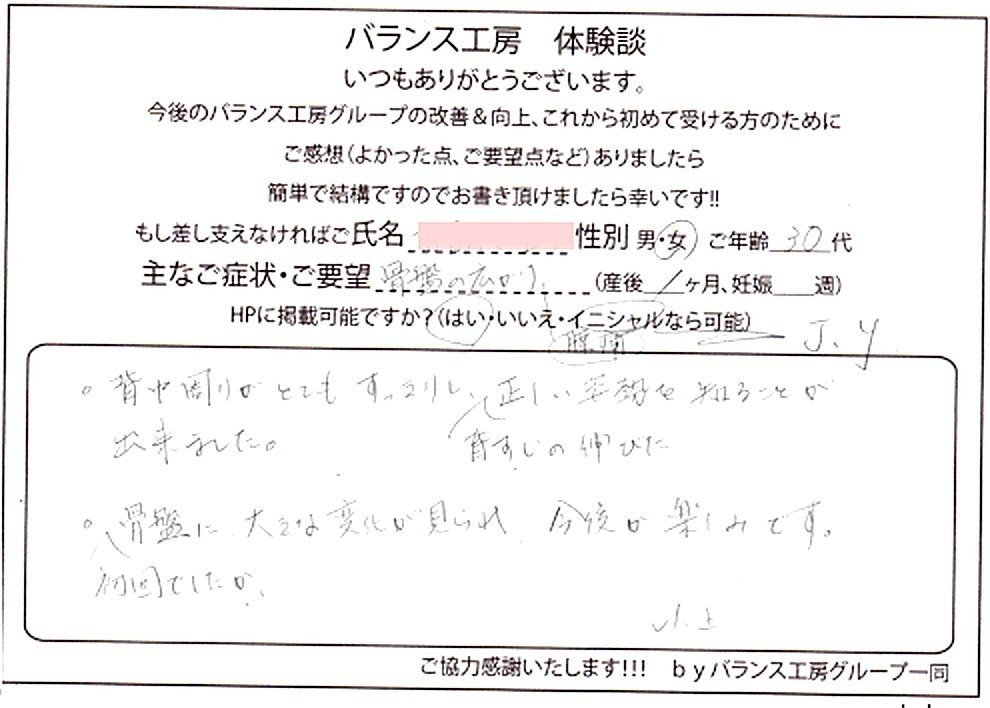 バランス工房　体験談
いつもありがとうございます。
今後のバランス工房グループの改善＆向上、これから初めて受ける方のために
ご感想（よかった点、ご要望点など）ありましたら
簡単で結構ですのでお書き頂けましたら幸いです!!
もし差し支えなければご氏名 性別 男・女 ご年齢 30 代
主なご症状・ご要望 骨盤の広がり （産後 / ヶ月、妊娠 週）
HPに掲載可能ですか？（はい・いいえ・イニシャルなら可能） J.Y
。背中周りがとても すっきりし、正しい姿勢を知ることが
出来ました。 背すじの伸びた
。骨盤に 大きな変化が見られ 今後が楽しみです。
初回でしたが、
以上
ご協力感謝いたします!!!　ｂｙバランス工房グループ一同